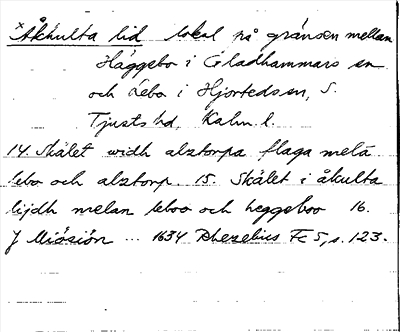 *Åkhulta lid lokal på gränsen mellan
Häggebo i Gladhammars sn
och Lebo i Hjorteds sn, S.
Tjusts hd, Kalm. l.
14. Skälet widh alztorpa flaga melã
lebo och alztorp. 15. Skälet i åkulta
lijdh melan leboo och heggeboo 16.
J Miösiön ... 1634 Rhezelius Fc 5, s. 123.